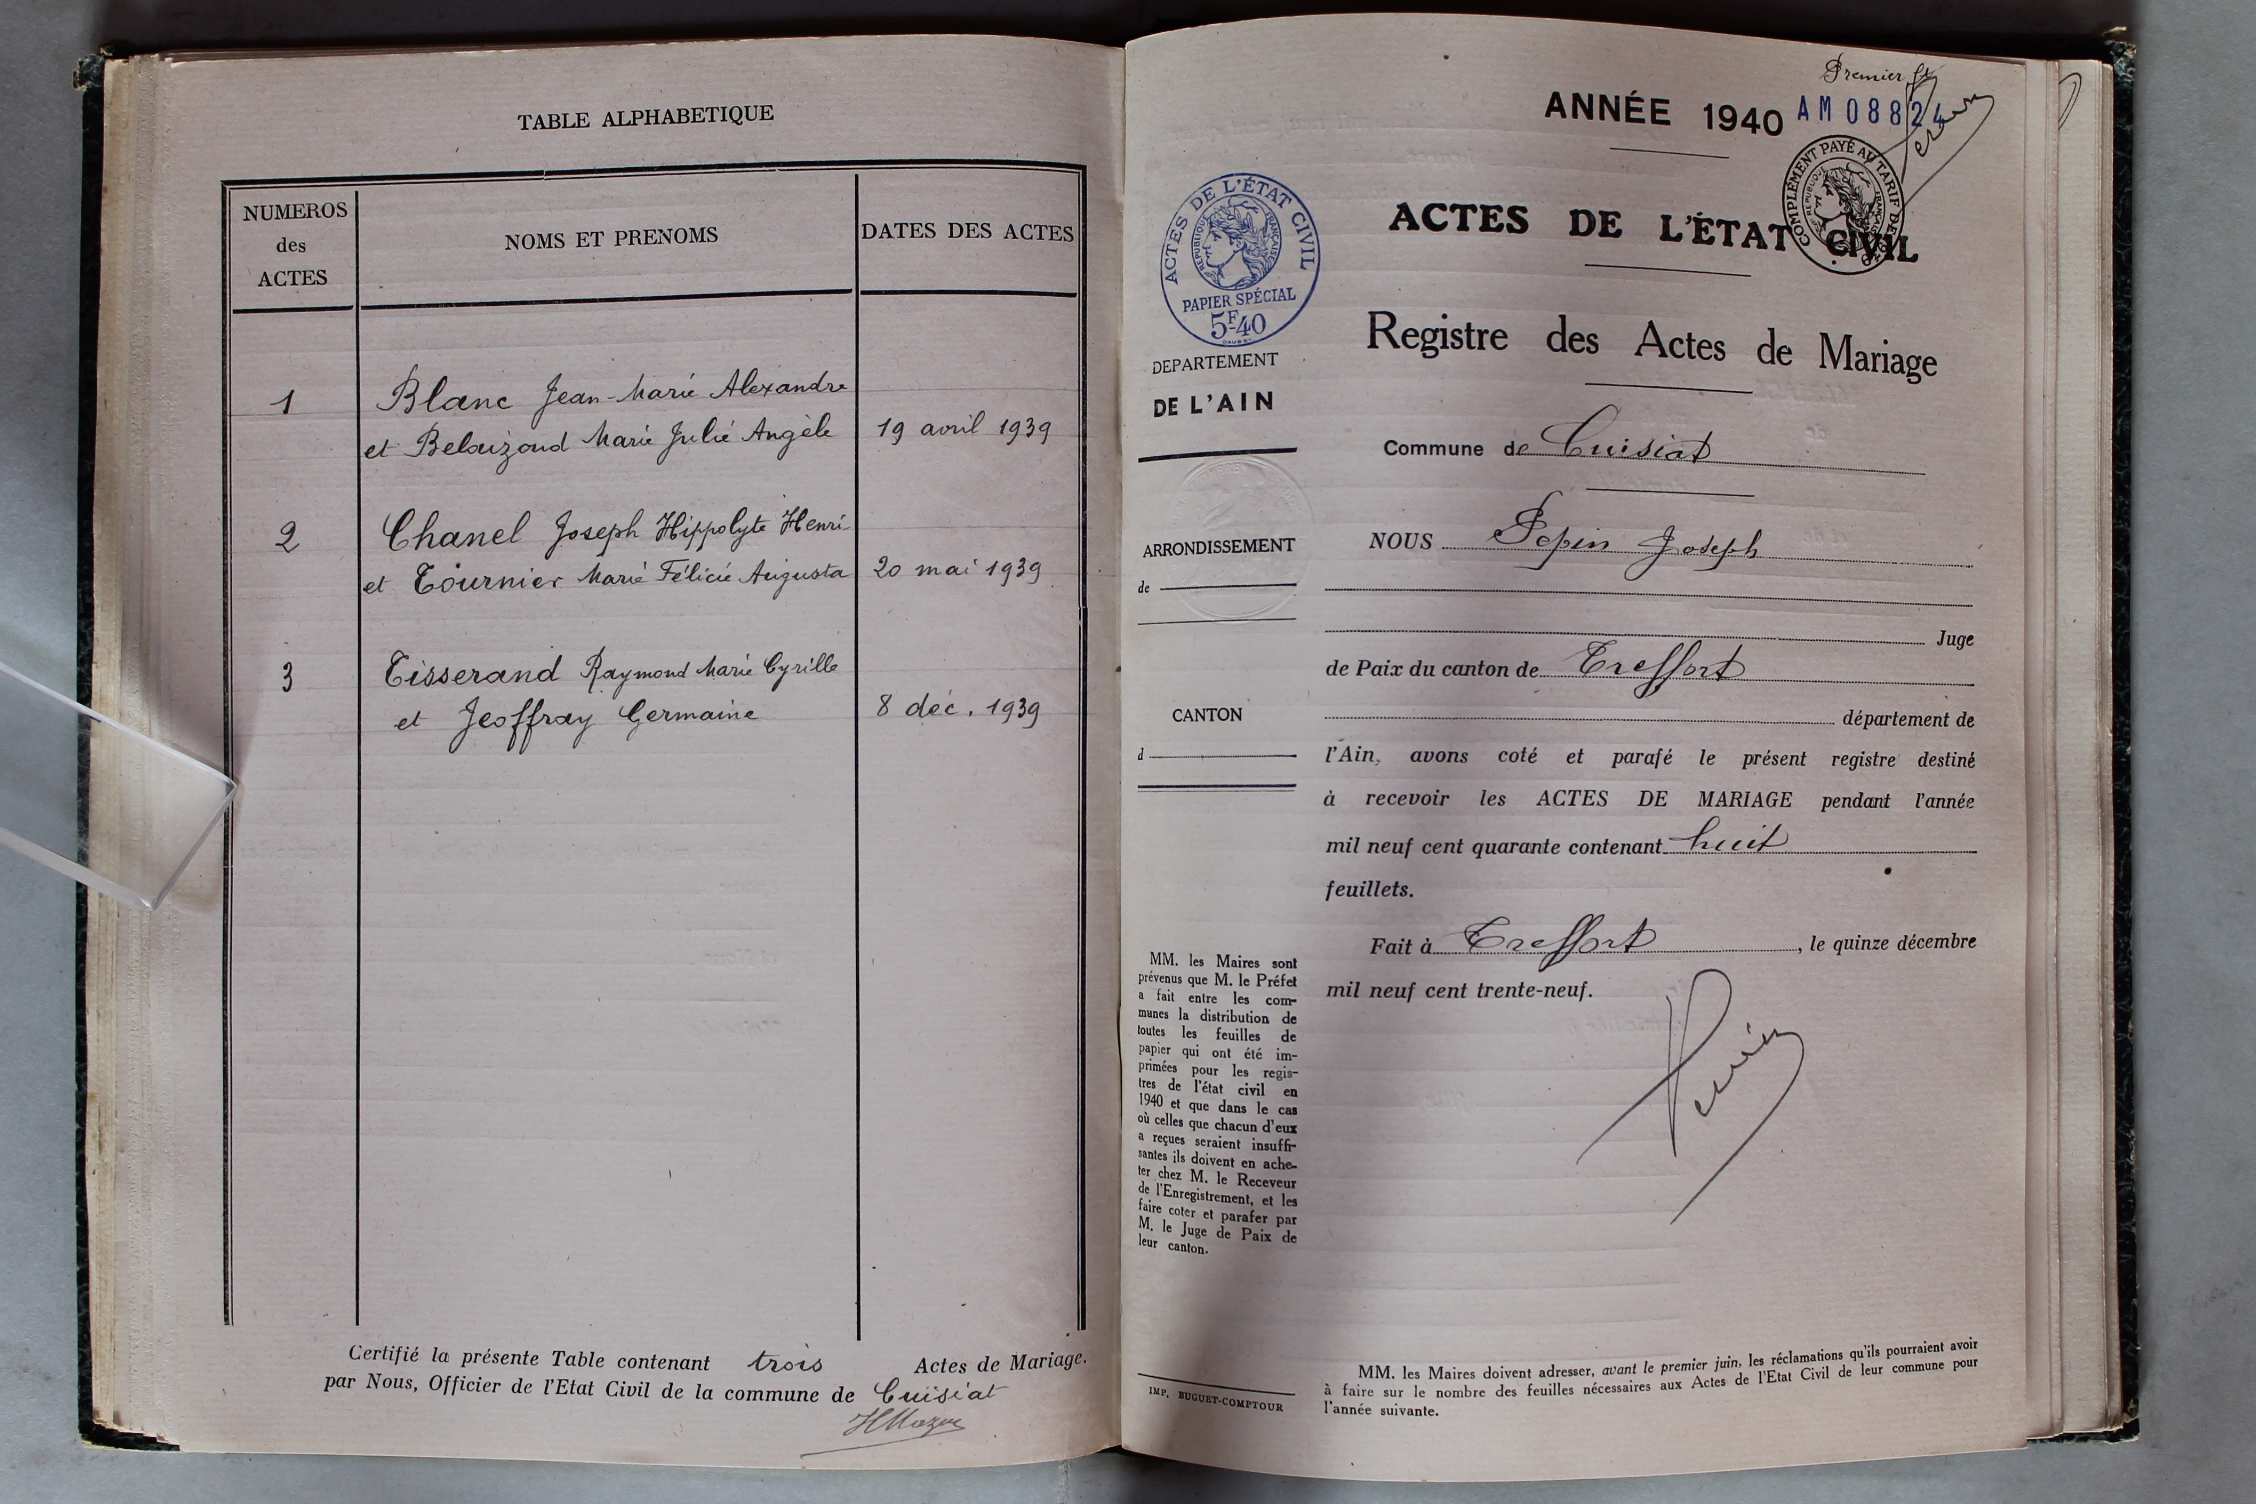 TABLE ALPHABETIQUE
NUMEROS
des
ACTES
NOMS ET PRENOMS
DATES DES ACTES
1
Blanc Jean-Marie Alexandre
et Belaizoud Marie Julie Angèle
19 avril 1939
2
Chanel Joseph Hippolyte Henri
et Tournier Marie Félicie Augusta
20 mai 1939
3
Tisserand Raymond Marie Cyrille
et Jeoffray Germaine
8 déc. 1939
Certifié la présente Table contenant trois Actes de Mariage.
par Nous, Officier de l'Etat Civil de la commune de Cuisiat
Premier ft
ANNÉE 1940
AM 08824
COMPLÉMENT PAYÉ AU TARIF DE
RÉPUBLIQUE FRANÇAISE
ACTES DE L'ÉTAT CIVIL
RÉPUBLIQUE FRANÇAISE
PAPIER SPÉCIAL
5F40
ACTES DE L'ÉTAT CIVIL
Registre des Actes de Mariage
DEPARTEMENT
DE L'AIN
Commune de Cuisiat
ARRONDISSEMENT
de
NOUS Pepin Joseph
Juge
de Paix du canton de Treffort
CANTON
d
département de
l'Ain, avons coté et parafé le présent registre destiné
à recevoir les ACTES DE MARIAGE pendant l'année
mil neuf cent quarante contenant huit
feuillets.
Fait à Treffort, le quinze décembre
mil neuf cent trente-neuf.
MM. les Maires sont
prévenus que M. le Préfet
a fait entre les com-
munes la distribution de
toutes les feuilles de
papier qui ont été im-
primées pour les regis-
tres de l'état civil en
1940 et que dans le cas
où celles que chacun d'eux
a reçues seraient insuffi-
santes ils doivent en ache-
ter chez M. le Receveur
de l'Enregistrement, et les
faire coter et parafer par
M. le Juge de Paix de
leur canton.
IMP. BUGUET-COMPTOUR
MM. les Maires doivent adresser, avant le premier juin, les réclamations qu'ils pourraient avoir
à faire sur le nombre des feuilles nécessaires aux Actes de l'Etat Civil de leur commune pour
l'année suivante.